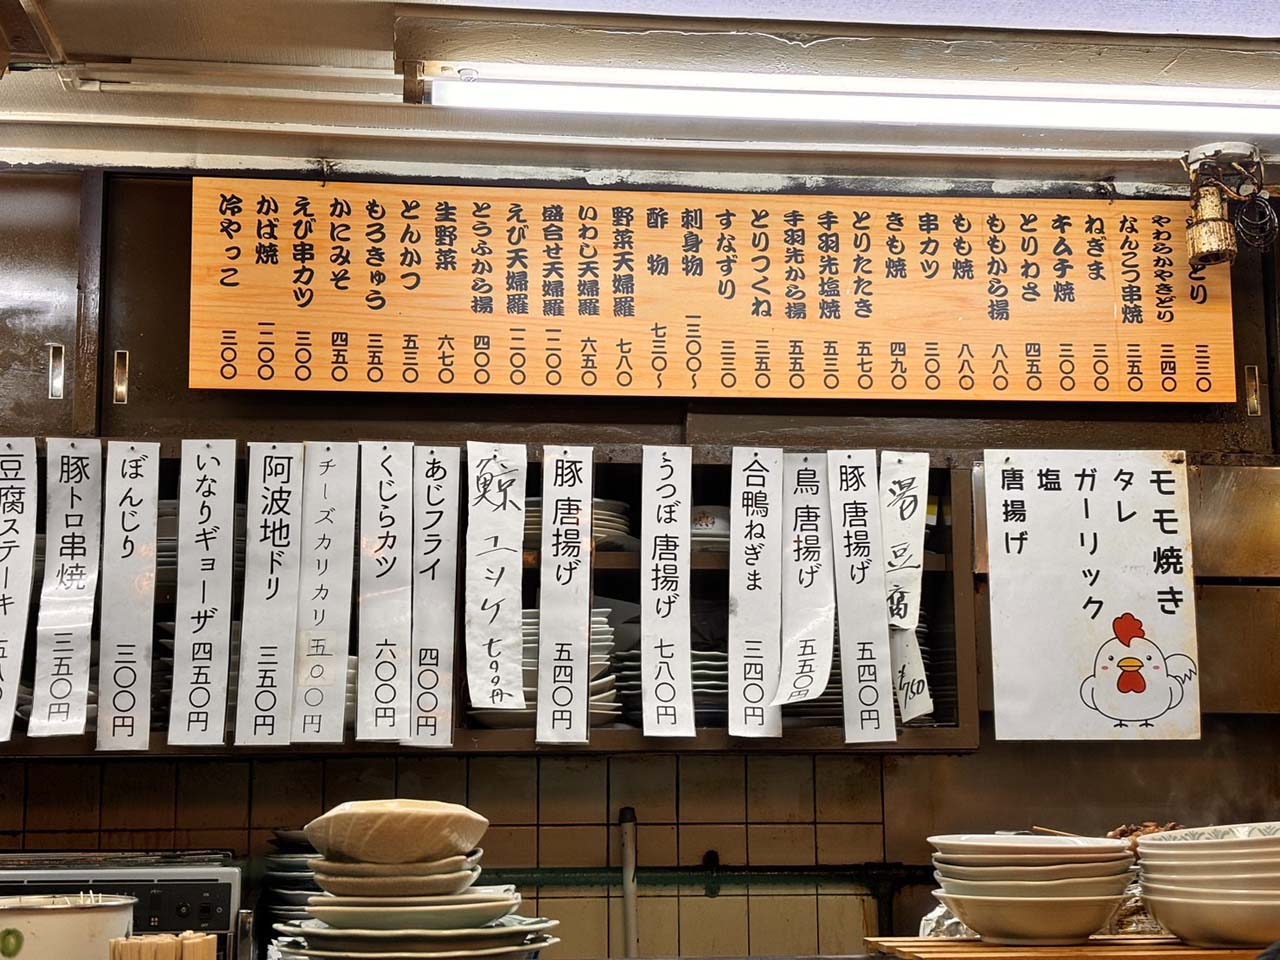 どり 三三〇
やわらかやきどり 三四〇
なんこつ串焼 三五〇
ねぎま 三〇〇
キムチ焼 三〇〇
とりわさ 四五〇
ももから揚 八八〇
もも焼 八八〇
串カツ 三〇〇
きも焼 四九〇
とりたたき 五七〇
手羽先塩焼 五三〇
手羽先から揚 五五〇
とりつくね 三五〇
すなずり 三三〇
刺身物 一三〇〇〜
酢物 七三〇〜
野菜天婦羅 七八〇
いわし天婦羅 六五〇
盛合せ天婦羅 一二〇〇
えび天婦羅 一一〇〇
とうふから揚 四〇〇
生野菜 六七〇
とんかつ 五三〇
もろきゅう 三五〇
かにみそ 四五〇
えび串カツ 三〇〇
かば焼 一二〇〇
冷やっこ 三〇〇
モモ焼き
タレ
ガーリック
塩
唐揚げ
湯豆腐 ¥750
豚唐揚げ 五四〇円
鳥唐揚げ 五五〇円
合鴨ねぎま 三四〇円
うつぼ唐揚げ 七八〇円
豚唐揚げ 五四〇円
鯨ユッケ 七００円
あじフライ 四〇〇円
くじらカツ 六〇〇円
チーズカリカリ 五〇〇円
阿波地ドリ 三五〇円
いなりギョーザ 四五〇円
ぼんじり 三〇〇円
豚トロ串焼 三五〇円
豆腐ステーキ 五八〇